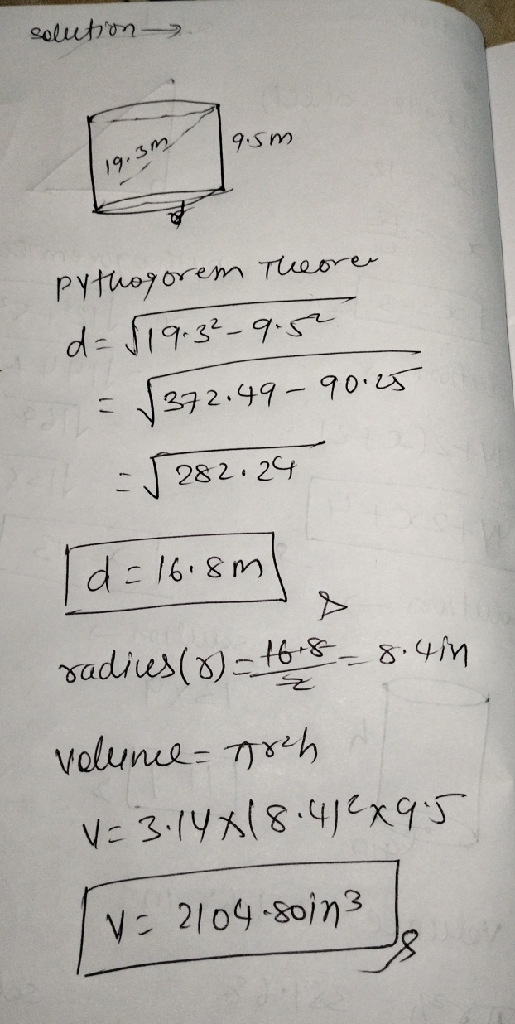 solution →
19.3m
9.5m
d
pythogorem Theore
d= √19.3²-9.5²
= √372.49-90.25
= √282.24
d=16.8m
radius(r)= 16.8/2 = 8.4in
volume= πr²h
V= 3.14×(8.4)²×9.5
V= 2104.80in³